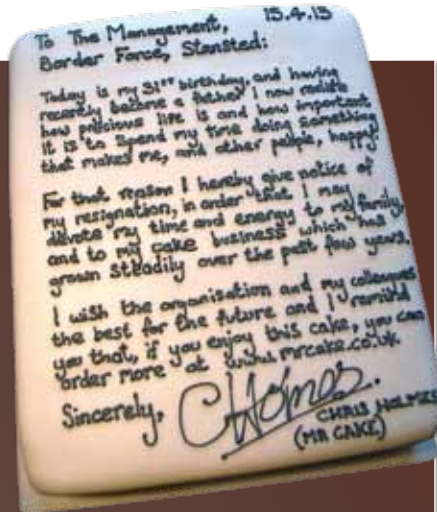 15.4.13
To The Management,
Border Force, Stansted:
Today is my 31st birthday, and having
recently become a father I now realise
how precious life is and how important
it is to spend my time doing something
that makes me, and other people, happy.
For that reason I hereby give notice of
my resignation, in order that I may
devote my time and energy to my family,
and to my cake business which has
grown steadily over the past few years.
I wish the organisation and my colleagues
the best for the future and I remind
you that, if you enjoy this cake, you can
order more at www.mrcake.co.uk
Sincerely, CHolmes.
CHRIS HOLMES
(MR CAKE)